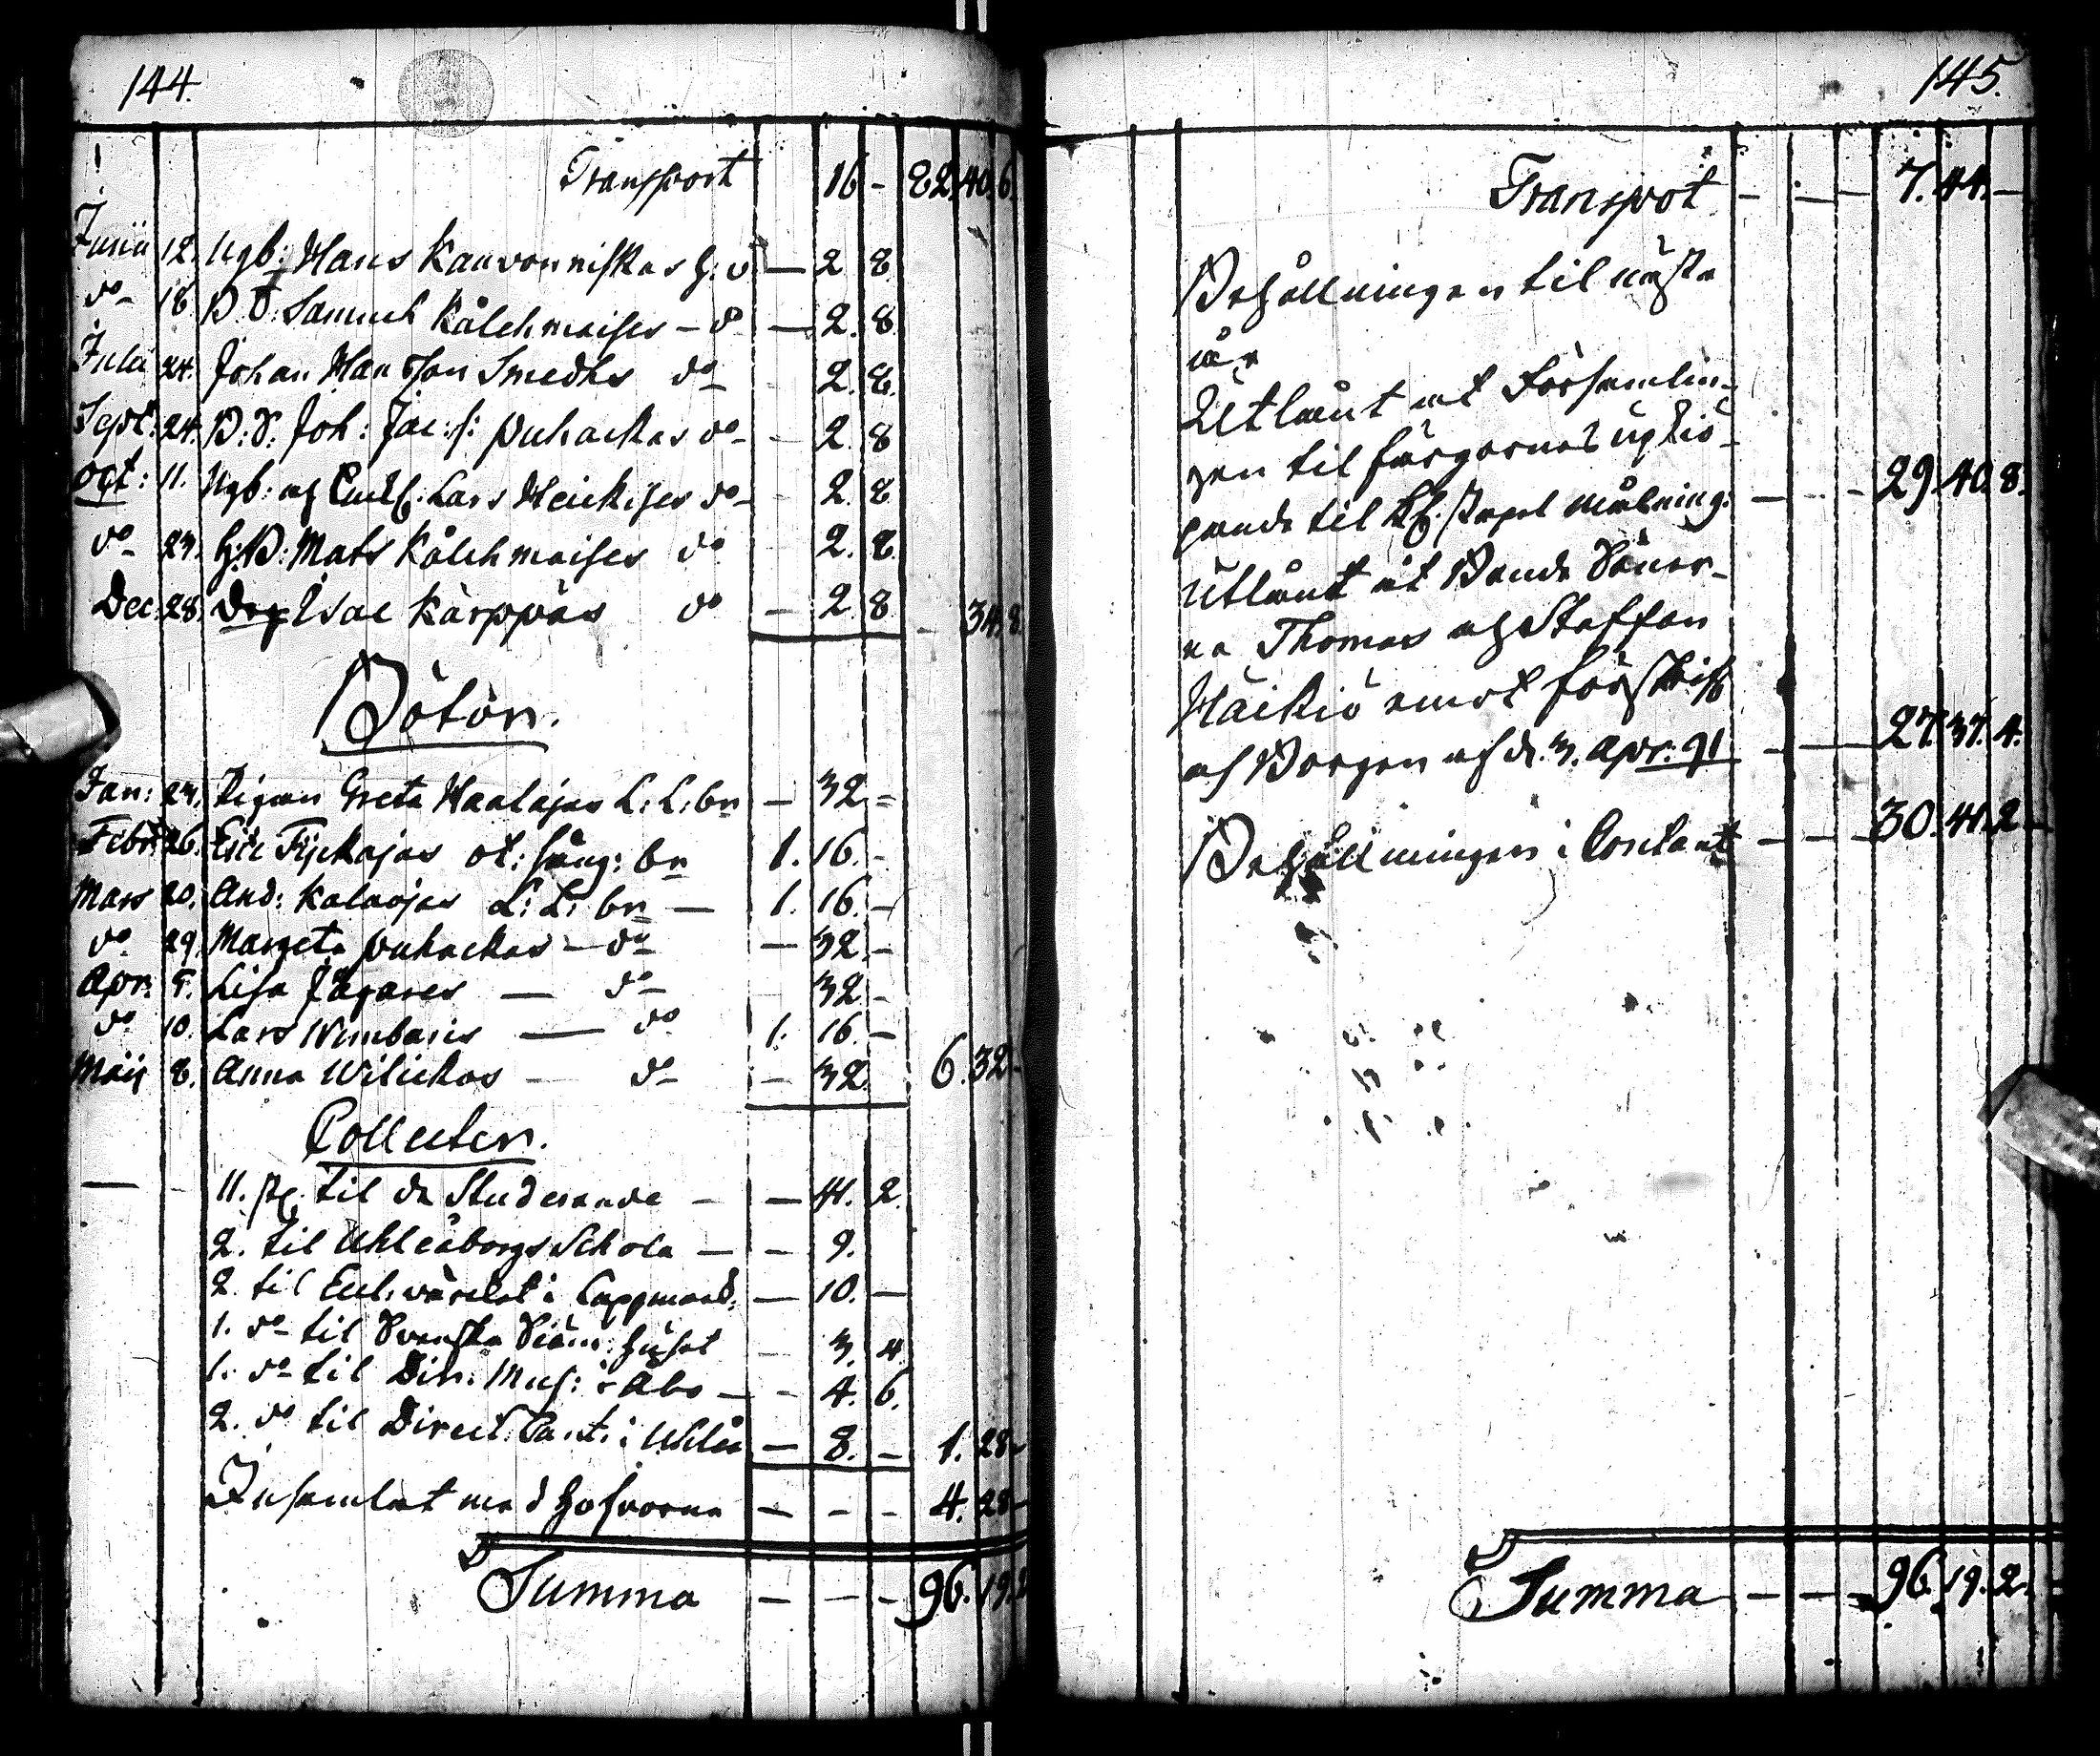 144.
Transport 16 - 82. 40. 6.
Junii 12. Ngb: Hans Kauvonniskas h: d - 2. 8.
do 18. B. D. Samuel Kälchmaises - do - 2. 8.
Julii 24. Johan Hansson Smedhs do - 2. 8.
Sept: 24. B: S: Joh: Jac: s: Puhackas do - 2. 8
Oct: 11. Ngb: och Enk: Lars Heickises do - 2. 8
do 23. h: B: Mats Kälchmaises do 2. 8.
Dec. 28. Isac Kärppäs do - 2. 8 - 34. 8.
Böter.
Jan: 23. Pigan Greta Haalajas L: L: br - 32 -
Febr: 26. Eric Tijckajas ot: säng: br 1. 16. -
Mars 20. And: Kalaojas L: L: br - 1. 16. -
do 29. Margeta Puhackas - do - 32. -
Apr: 5. Lisa Jägares - do 32 -
do 10. Lars Wimbaris - do 1. 16. -
Maij 8. Anna Wilickas - do - 32. 6. 32 -
Collecter.
11. st: til de Studerande - - 41. 2.
2. til Uhleåborgs Schola - - 9.
2. til Eccl: värcket i Lappmark: - 10. -
1. do til Svenska Siöm: huset - 3. 4.
1. do til Dir: Mus: i Abo - - 4. 6.
2. do til Direct: Cant: i Uhleå - 8. - 1. 28 -
Insamlat med Hofvarne - - - 4. 28 -
Summa - - - 96. 19. 2
145.
Transport - - - 7. 44. -
Behållningen til nästa
år
Utlånt åt Församlin-
gen til färgornas upkiö-
pande til Kk: stapel målning: - - - 29. 40. 8.
Utlånt åt Bonde Söner-
na Thomas och Staffan
Häikiö emot förskrift
och Borgen af d. 3. Apr: 91 - - 27. 37. 4.
Behållningen i Contant - - - 30. 41. 2 -
Summa - - - 96. 19. 2.